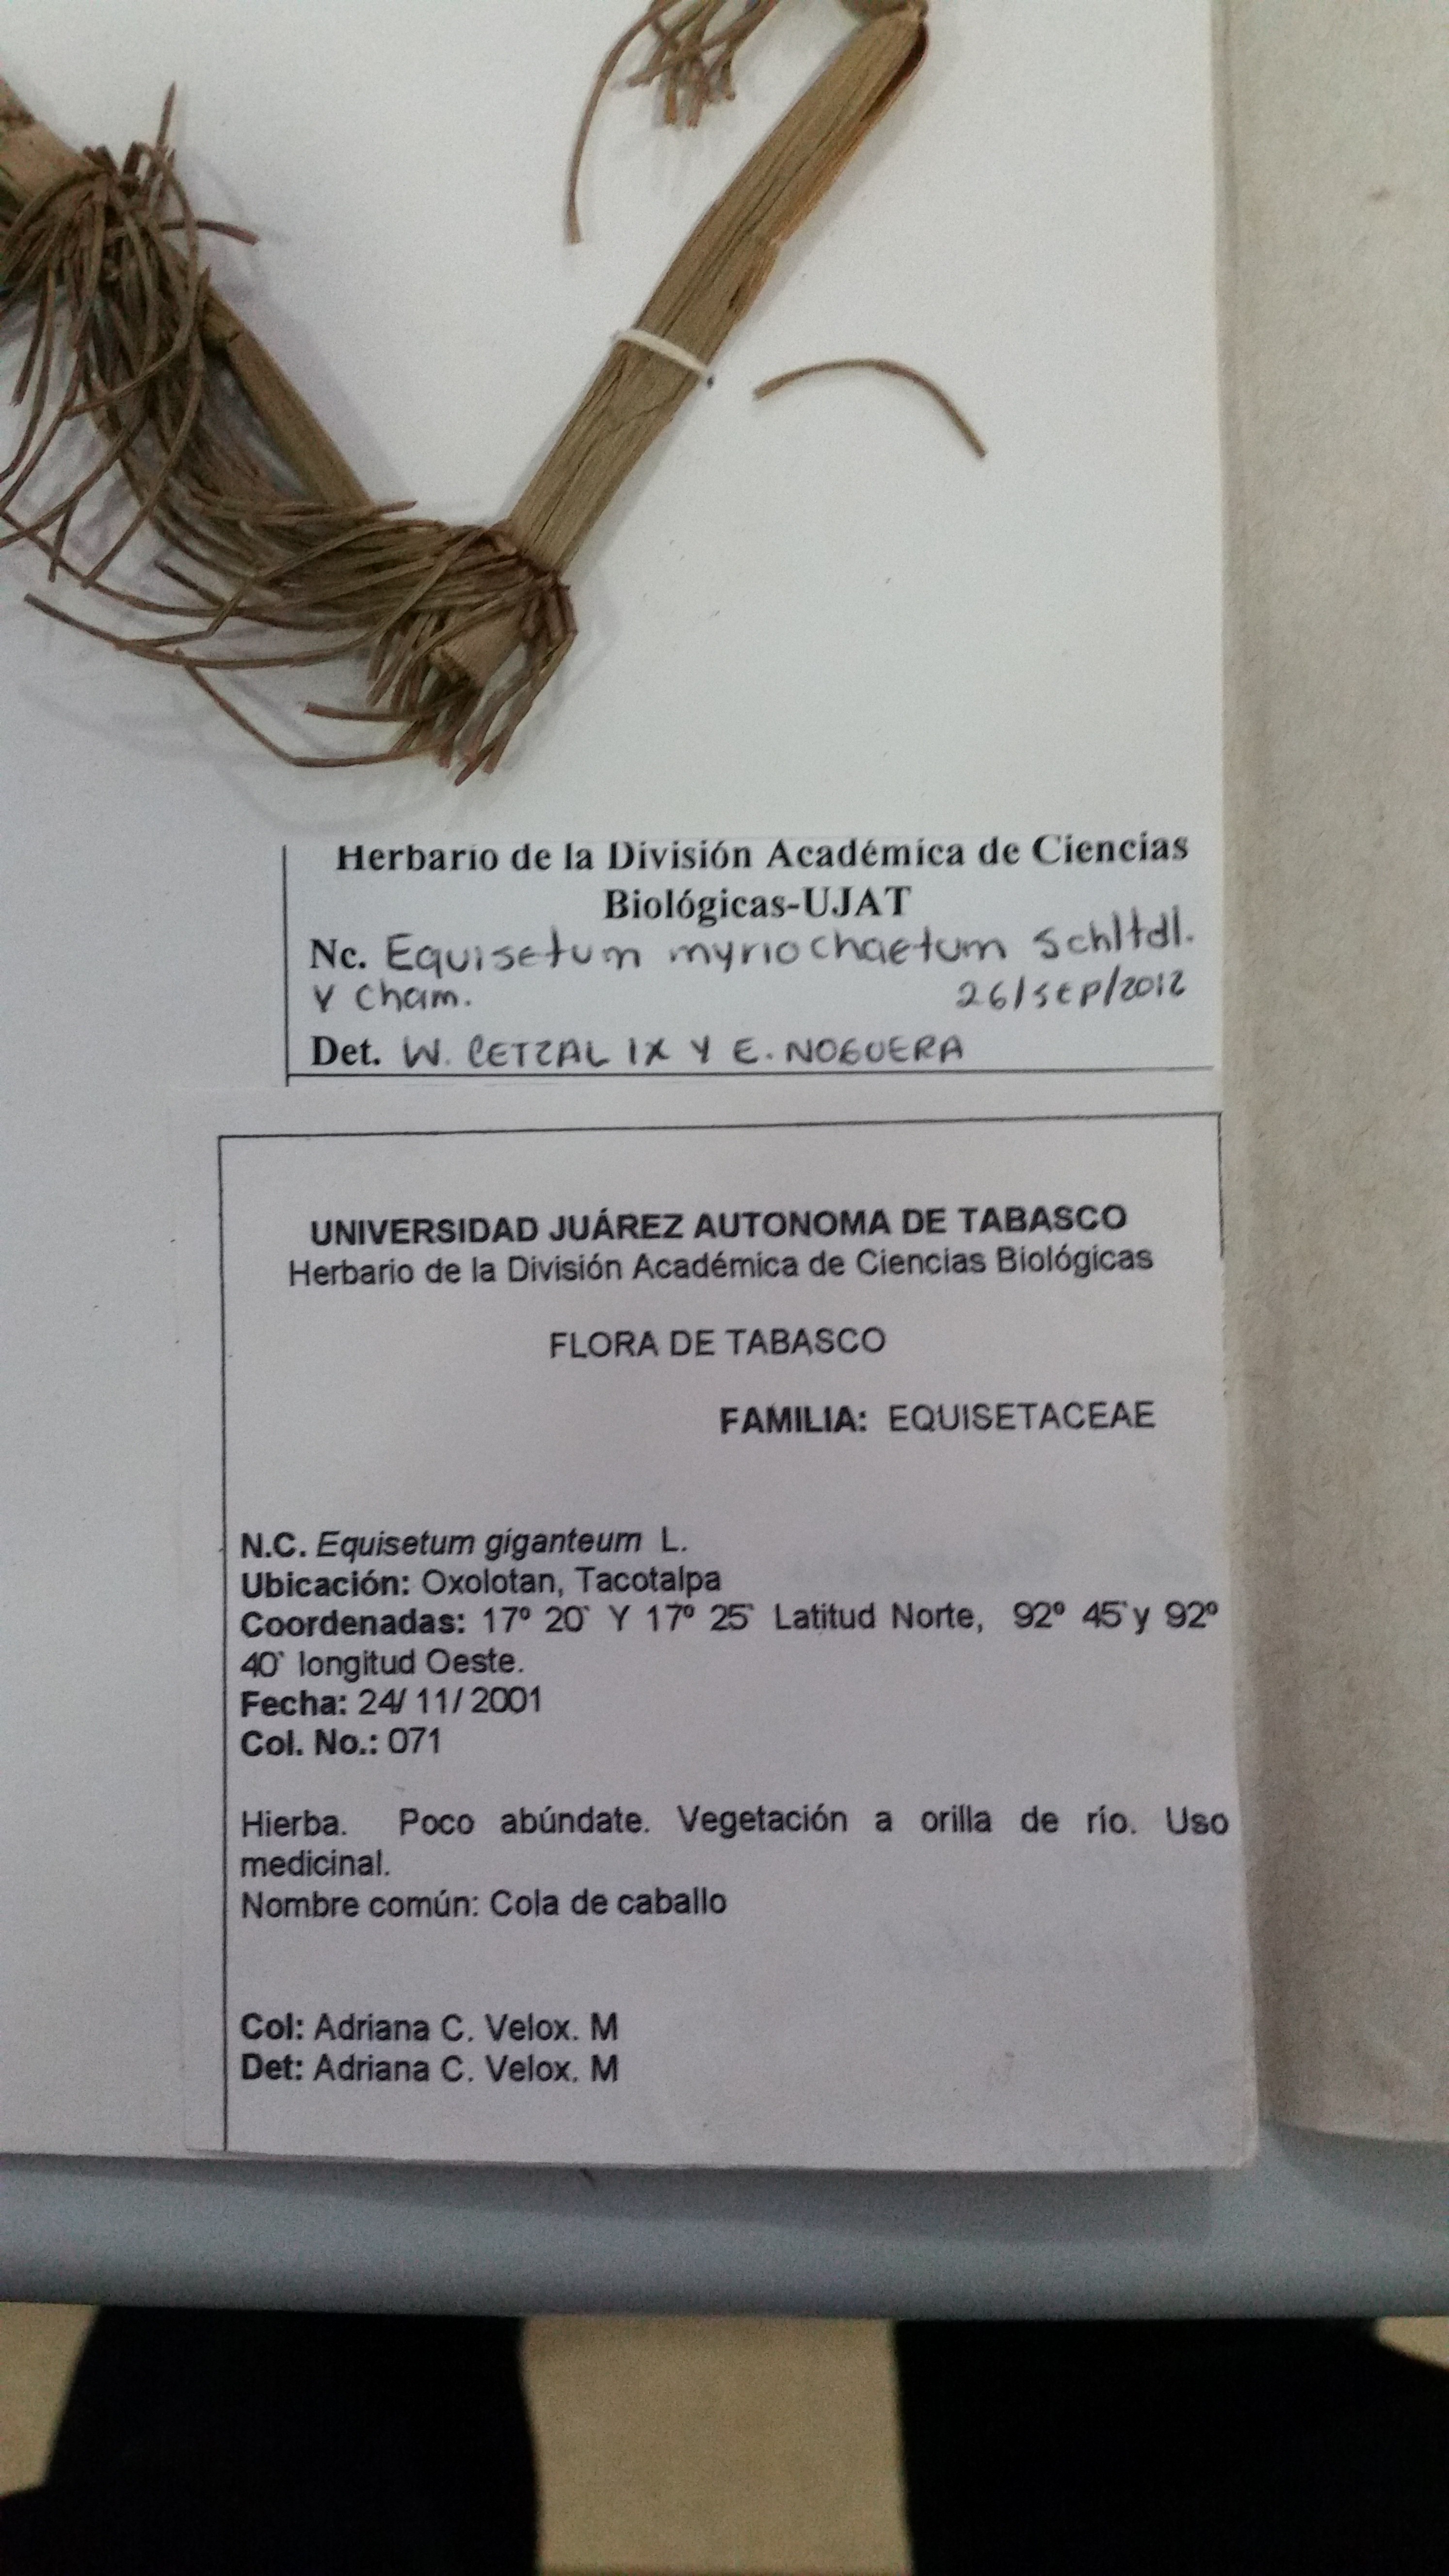 Herbario de la División Académica de Ciencias
Biológicas-UJAT
Nc. Equisetum myriochaetum Schltdl.
Y Cham. 26/SEP/2012
Det. W. CETZAL IX Y E. NOGUERA
UNIVERSIDAD JUÁREZ AUTONOMA DE TABASCO
Herbario de la División Académica de Ciencias Biológicas
FLORA DE TABASCO
FAMILIA: EQUISETACEAE
N.C. Equisetum giganteum L.
Ubicación: Oxolotan, Tacotalpa
Coordenadas: 17º 20` Y 17º 25` Latitud Norte, 92º 45`y 92º
40` longitud Oeste.
Fecha: 24/ 11/ 2001
Col. No.: 071
Hierba. Poco abúndate. Vegetación a orilla de río. Uso
medicinal.
Nombre común: Cola de caballo
Col: Adriana C. Velox. M
Det: Adriana C. Velox. M